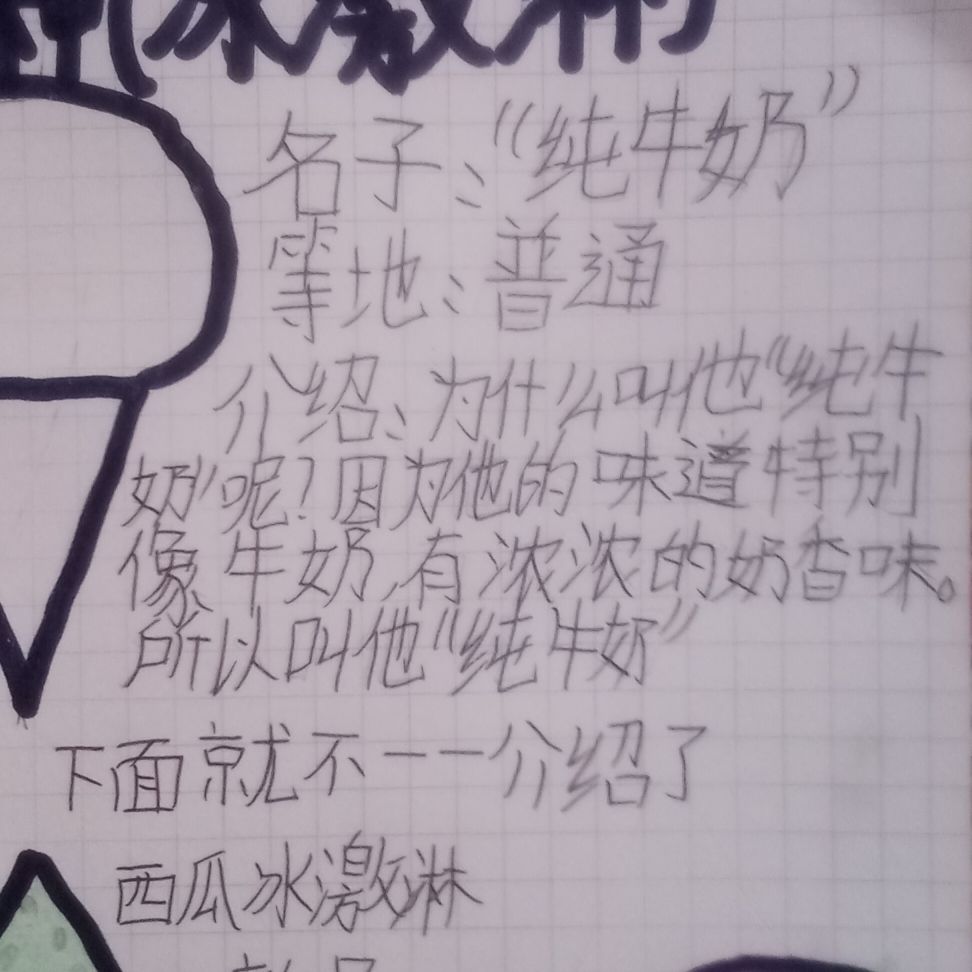 冰激淋
名子："纯牛奶"
等地：普通
介绍：为什么叫他"纯牛
奶"呢？因为他的味道特别
像牛奶，有浓浓的奶香味。
所以叫他"纯牛奶"
下面就不一一介绍了
西瓜冰激淋